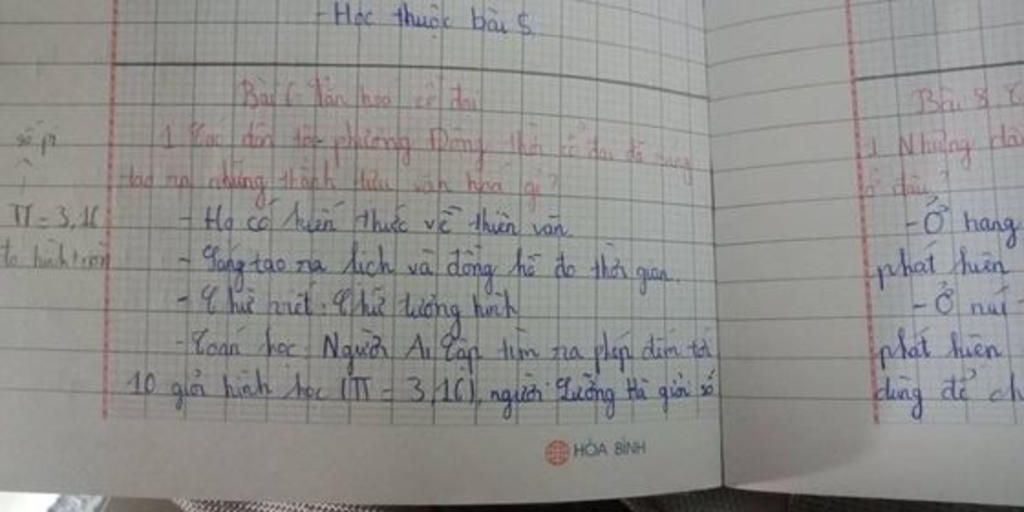 - Học thuộc bài 5
Bài 6 Văn hoá cổ đại
1 Các dân tộc phương Đông thời cổ đại đã
tạo ra những thành tựu văn hoá gì?
số pi
π = 3,16
- Họ có kiến thức về thiên văn
- Sáng tạo ra lịch và đồng hồ đo thời gian.
- Chữ viết: Chữ tượng hình
- Toán học: Người Ai Cập tìm ra phép đếm tới
10 giỏi hình học (π = 3,16), người Lưỡng Hà giỏi số
HÒA BÌNH
Bài 8
1 Những
ở đâu?
- Ở hang
phát hiện
- Ở núi
phát hiện
dùng để